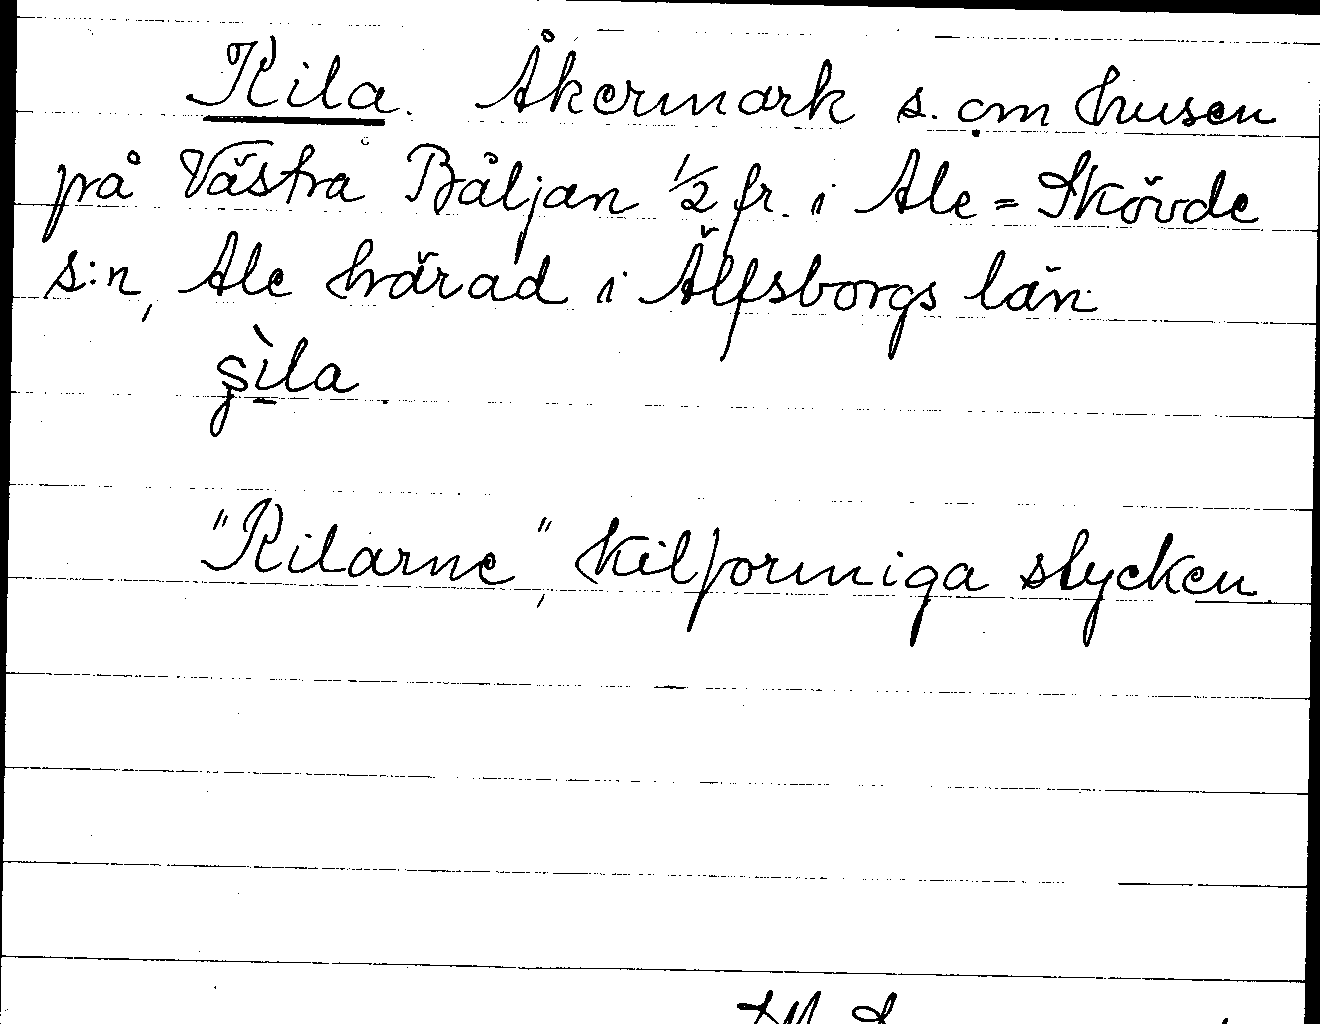 Kila. Åkermark s. om husen
på Västra Båljan 1/2 fr. i Ale=Skövde
s:n, Ale härad i Älfsborgs län.
ʂìla.
"Kilarne", kilformiga stycken.